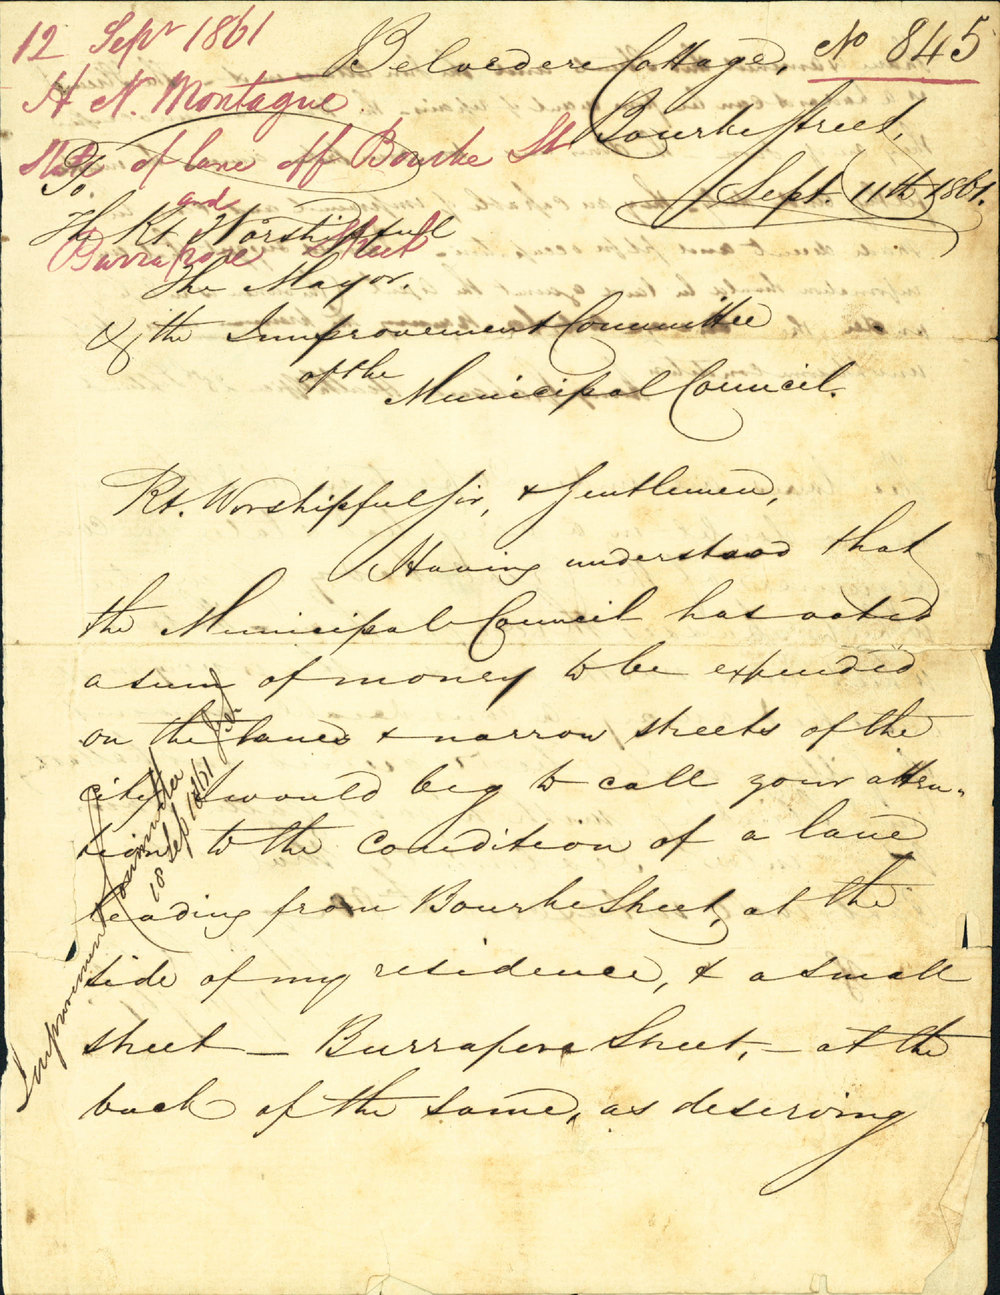 12 Sepr 1861
No 845
H. N. Montague
State of lane off Bourke St
and
Burrapore Street
Belvedere Cottage,
Bourke Street,
Sept. 11th 1861.
To
The Rt. Worshipful
The Mayor,
& the Improvement Committee
of the
Municipal Council.
Rt. Worshipful Sir, & Gentlemen,
Having understood that
the Municipal Council has voted
a sum of money to be expended
on the lanes & narrow streets of the
city I would beg to call your atten-
tion to the condition of a lane
leading from Bourke Street, at the
side of my residence, & a small
street — Burrapore Street, — at the
back of the same, as deserving
Improvement Committee
18 Sep 1861